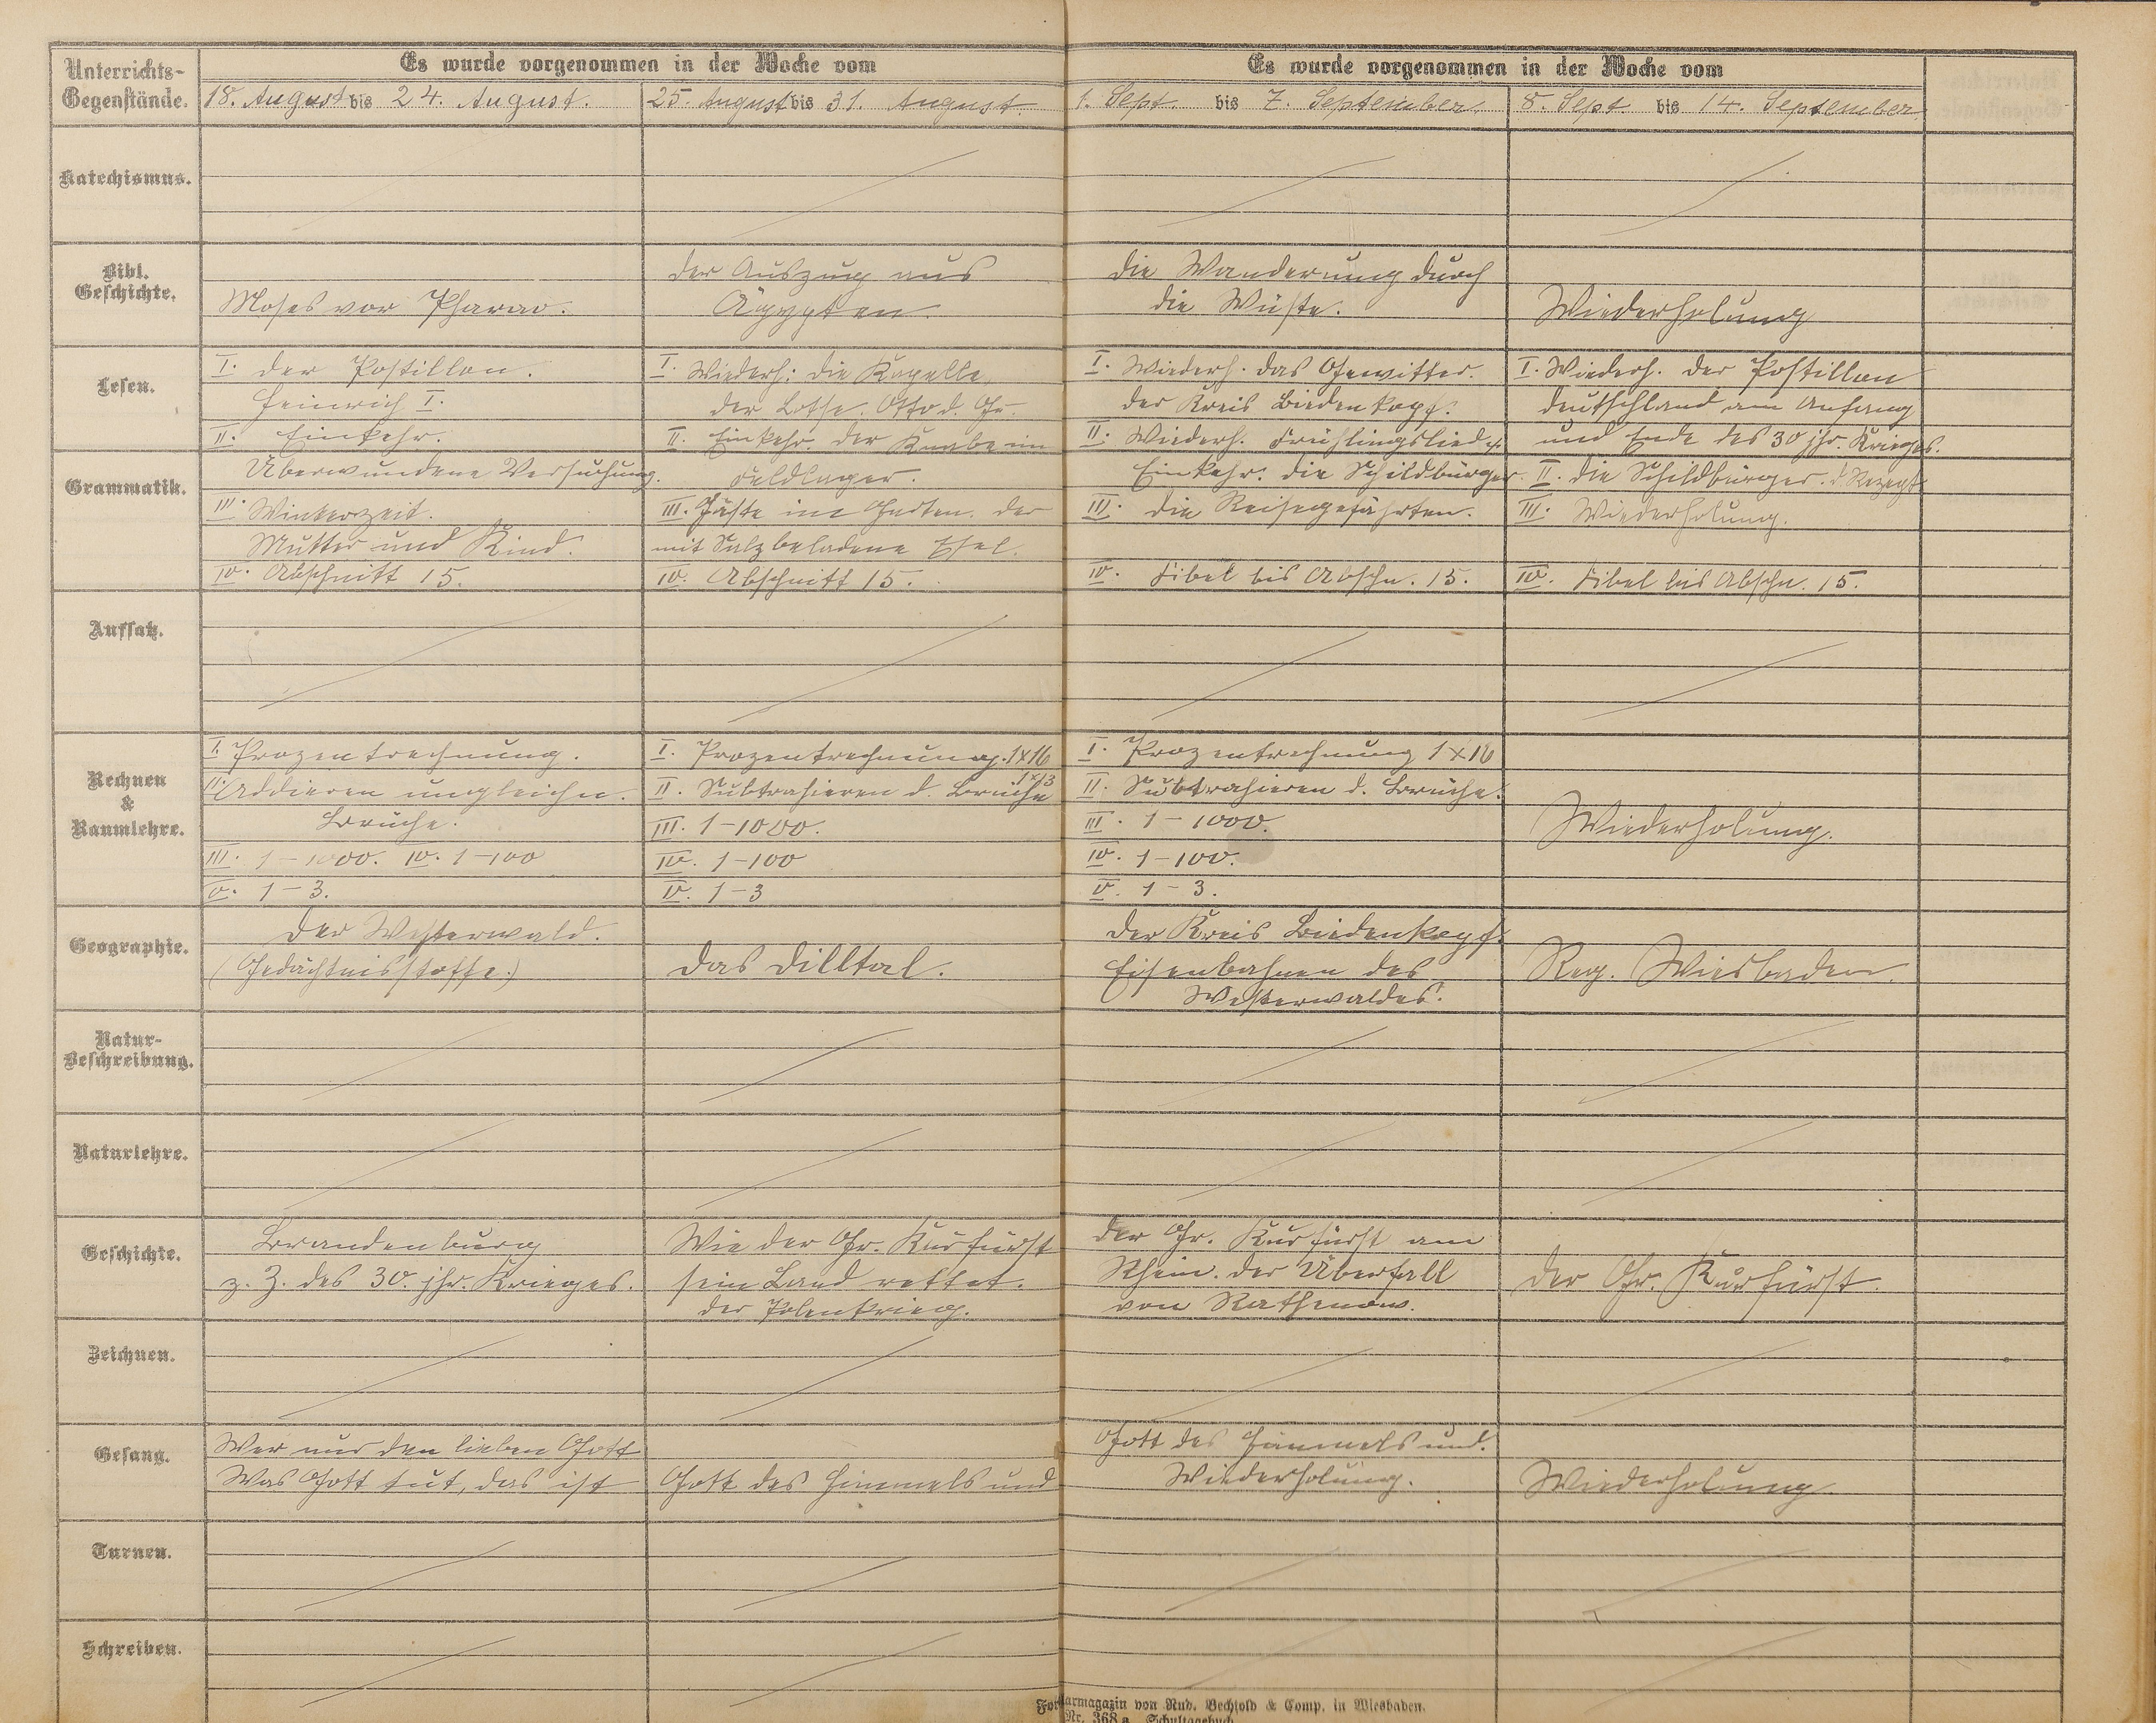 Unterrichts-
Gegenstände.
Es wurde vorgenommen in der Woche vom
Es wurde vorgenommen in der Woche vom
18. August bis 24. August.
25. August bis 31. August.
1. Sept. bis 7. September.
8. Sept. bis 14. September
Katechismus.
Bibl.
Geschichte.
Moses vor Pharao.
Der Auszug aus
Ägypten.
Die Wanderung durch
die Wüste.
Wiederholung
Lesen.
Grammatik.
I. Der Postillon.
Heinrich I.
II. Einkehr.
Überwundene Versuchung.
III. Winterzeit.
Mutter und Kind.
IV. Abschnitt 15.
I. Wiederh: Die Kapelle,
Der Lotse. Otto d. Gr.
II. Einkehr. Der Knabe im
Feldlager.
III. Gäste im Garten. Der
mit Salz beladene Esel.
IV. Abschnitt 15.
I. Wiederh. Das Gewitter.
Der Kreis Biedenkopf.
II. Wiederh. Frühlingslied.
Einkehr. Die Schildbürger.
III. Die Reisegefährten.
IV. Fibel bis Abschn. 15.
I. Wiederh. Der Postillon
Deutschland am Anfang
und Ende des 30 jhr. Krieges.
II. Die Schildbürger. d. Rezept
III. Wiederholung.
IV. Fibel bis Abschn. 15.
Aufsatz.
Rechnen
&
Raumlehre.
I. Prozentrechnung.
II. Addieren ungleichn.
Brüche.
III. 1-1000. IV. 1-100
V. 1-3.
I. Prozentrechnung. 1x16
II. Subtrahieren d. Brüche 1x13
III. 1-1000.
IV. 1-100
V. 1-3
I. Prozentrechnung 1x16
II. Subtrahieren d. Brüche.
III. 1-1000.
IV. 1-100.
V. 1-3.
Wiederholung.
Geographie.
Der Westerwald.
(Gedächtnisstoffe.)
Das Dilltal.
Der Kreis Biedenkopf.
Eisenbahnen des
Westerwaldes.
Reg. Wiesbaden.
Natur-
Beschreibung.
Naturlehre.
Geschichte.
Brandenburg
z. Z. des 30. jhr. Krieges.
Wie der Gr. Kurfürst
sein Land rettet.
Der Polenkrieg.
Der Gr. Kurfürst am
Rhein. Der Überfall
von Rathenow.
Der Gr. Kurfürst.
Zeichnen.
Gesang.
Wer nur den lieben Gott
Was Gott tut, das ist
Gott des Himmels und
Gott des Himmels und.
Wiederholung.
Wiederholung
Turnen.
Schreiben.
Formularmagazin von Rud. Bechtold & Comp. in Wiesbaden.
Nr. 368 a Schultagebuch